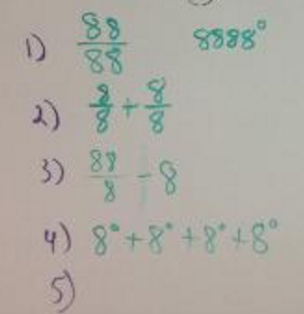 1) 88/88 8888°
2) 8/8 + 8/8
3) 88/8 - 8
4) 8° + 8° + 8° + 8°
5)